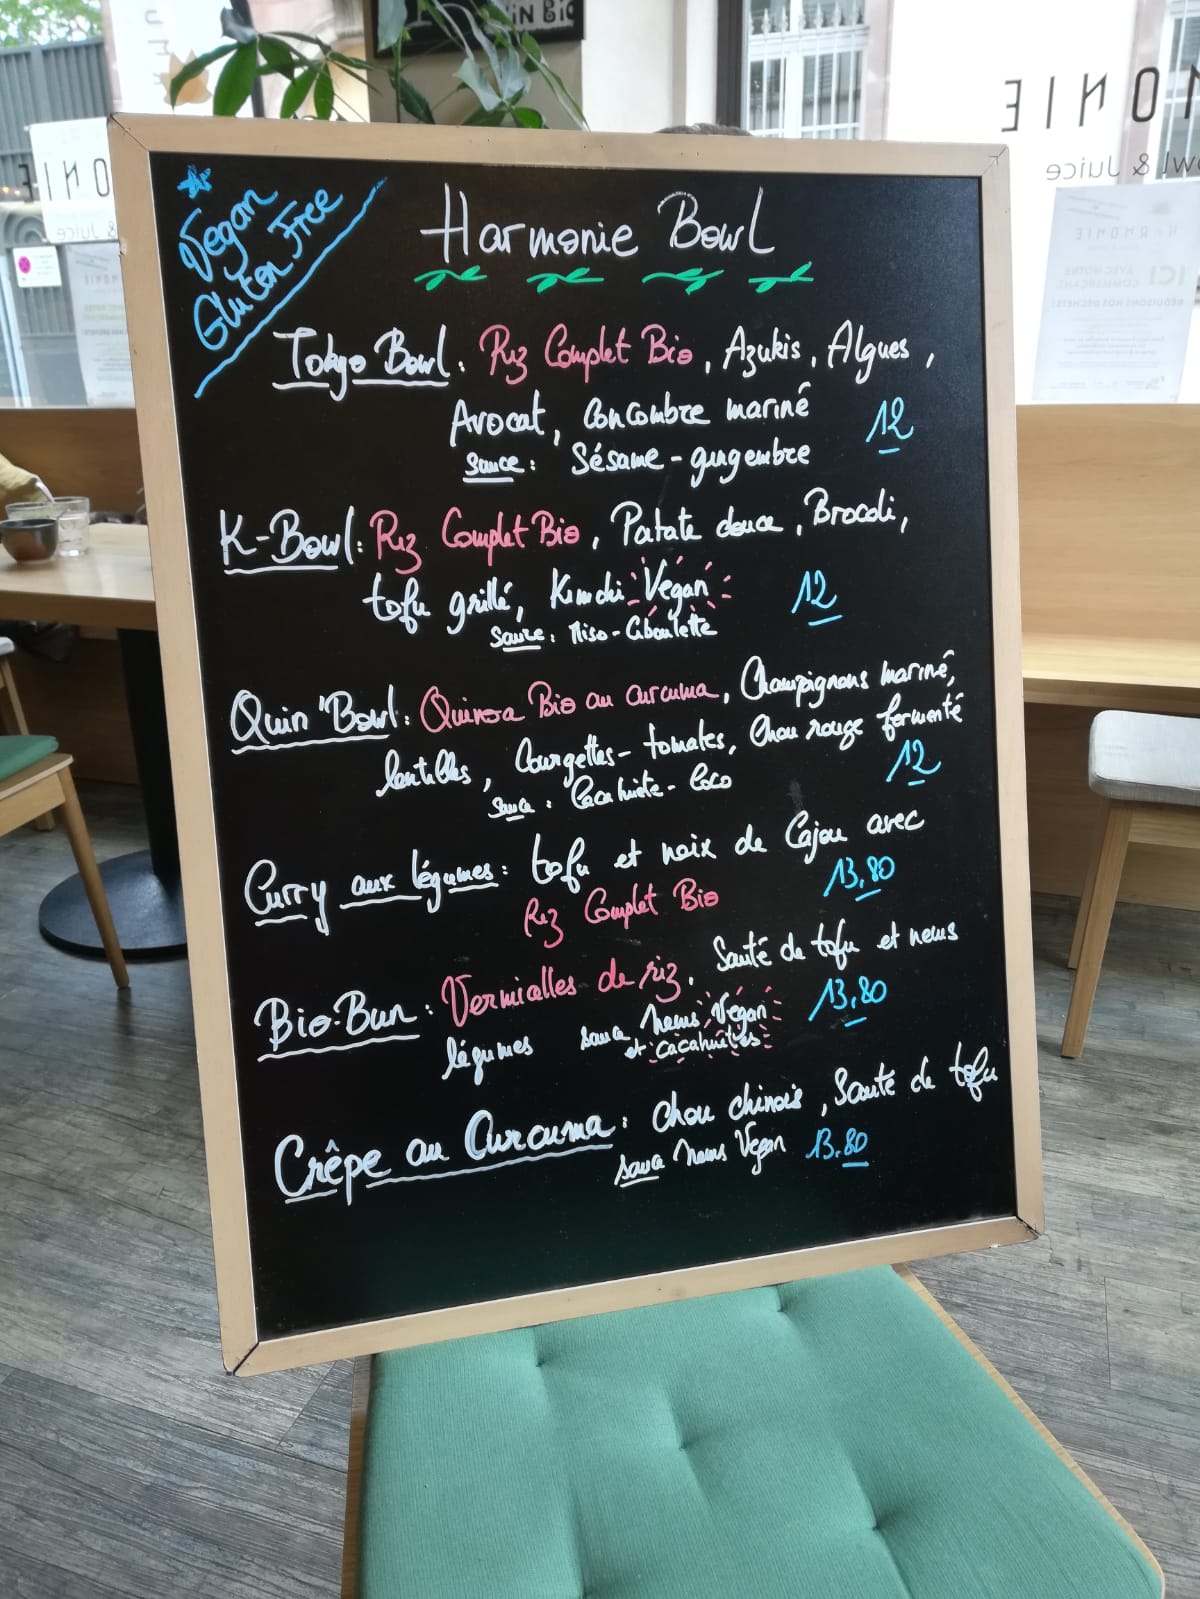 VIN BIO
MONIE
Bowl & Juice
HARMONIE
ICI
Vegan
Gluten Free
Harmonie Bowl
Tokyo Bowl : Riz Complet Bio, Azukis, Algues,
Avocat, Concombre mariné 12
Sauce : Sésame - gingembre
K-Bowl : Riz Complet Bio, Patate douce, Brocoli,
tofu grillé, Kimchi Vegan 12
Sauce : Miso - Ciboulette
Quin'Bowl : Quinoa Bio au curcuma, Champignons mariné,
lentilles, Courgettes - tomates, Chou rouge fermenté
Sauce : Cacahuète - Coco 12
Curry aux légumes : tofu et noix de Cajou avec
Riz Complet Bio 13,80
Bio-Bun : Vermicelles de riz. Sauté de tofu et nems
légumes sauce nems Vegan 13,80
et cacahuètes
Crêpe au Curcuma : chou chinois, Sauté de tofu
sauce nems Vegan 13.80